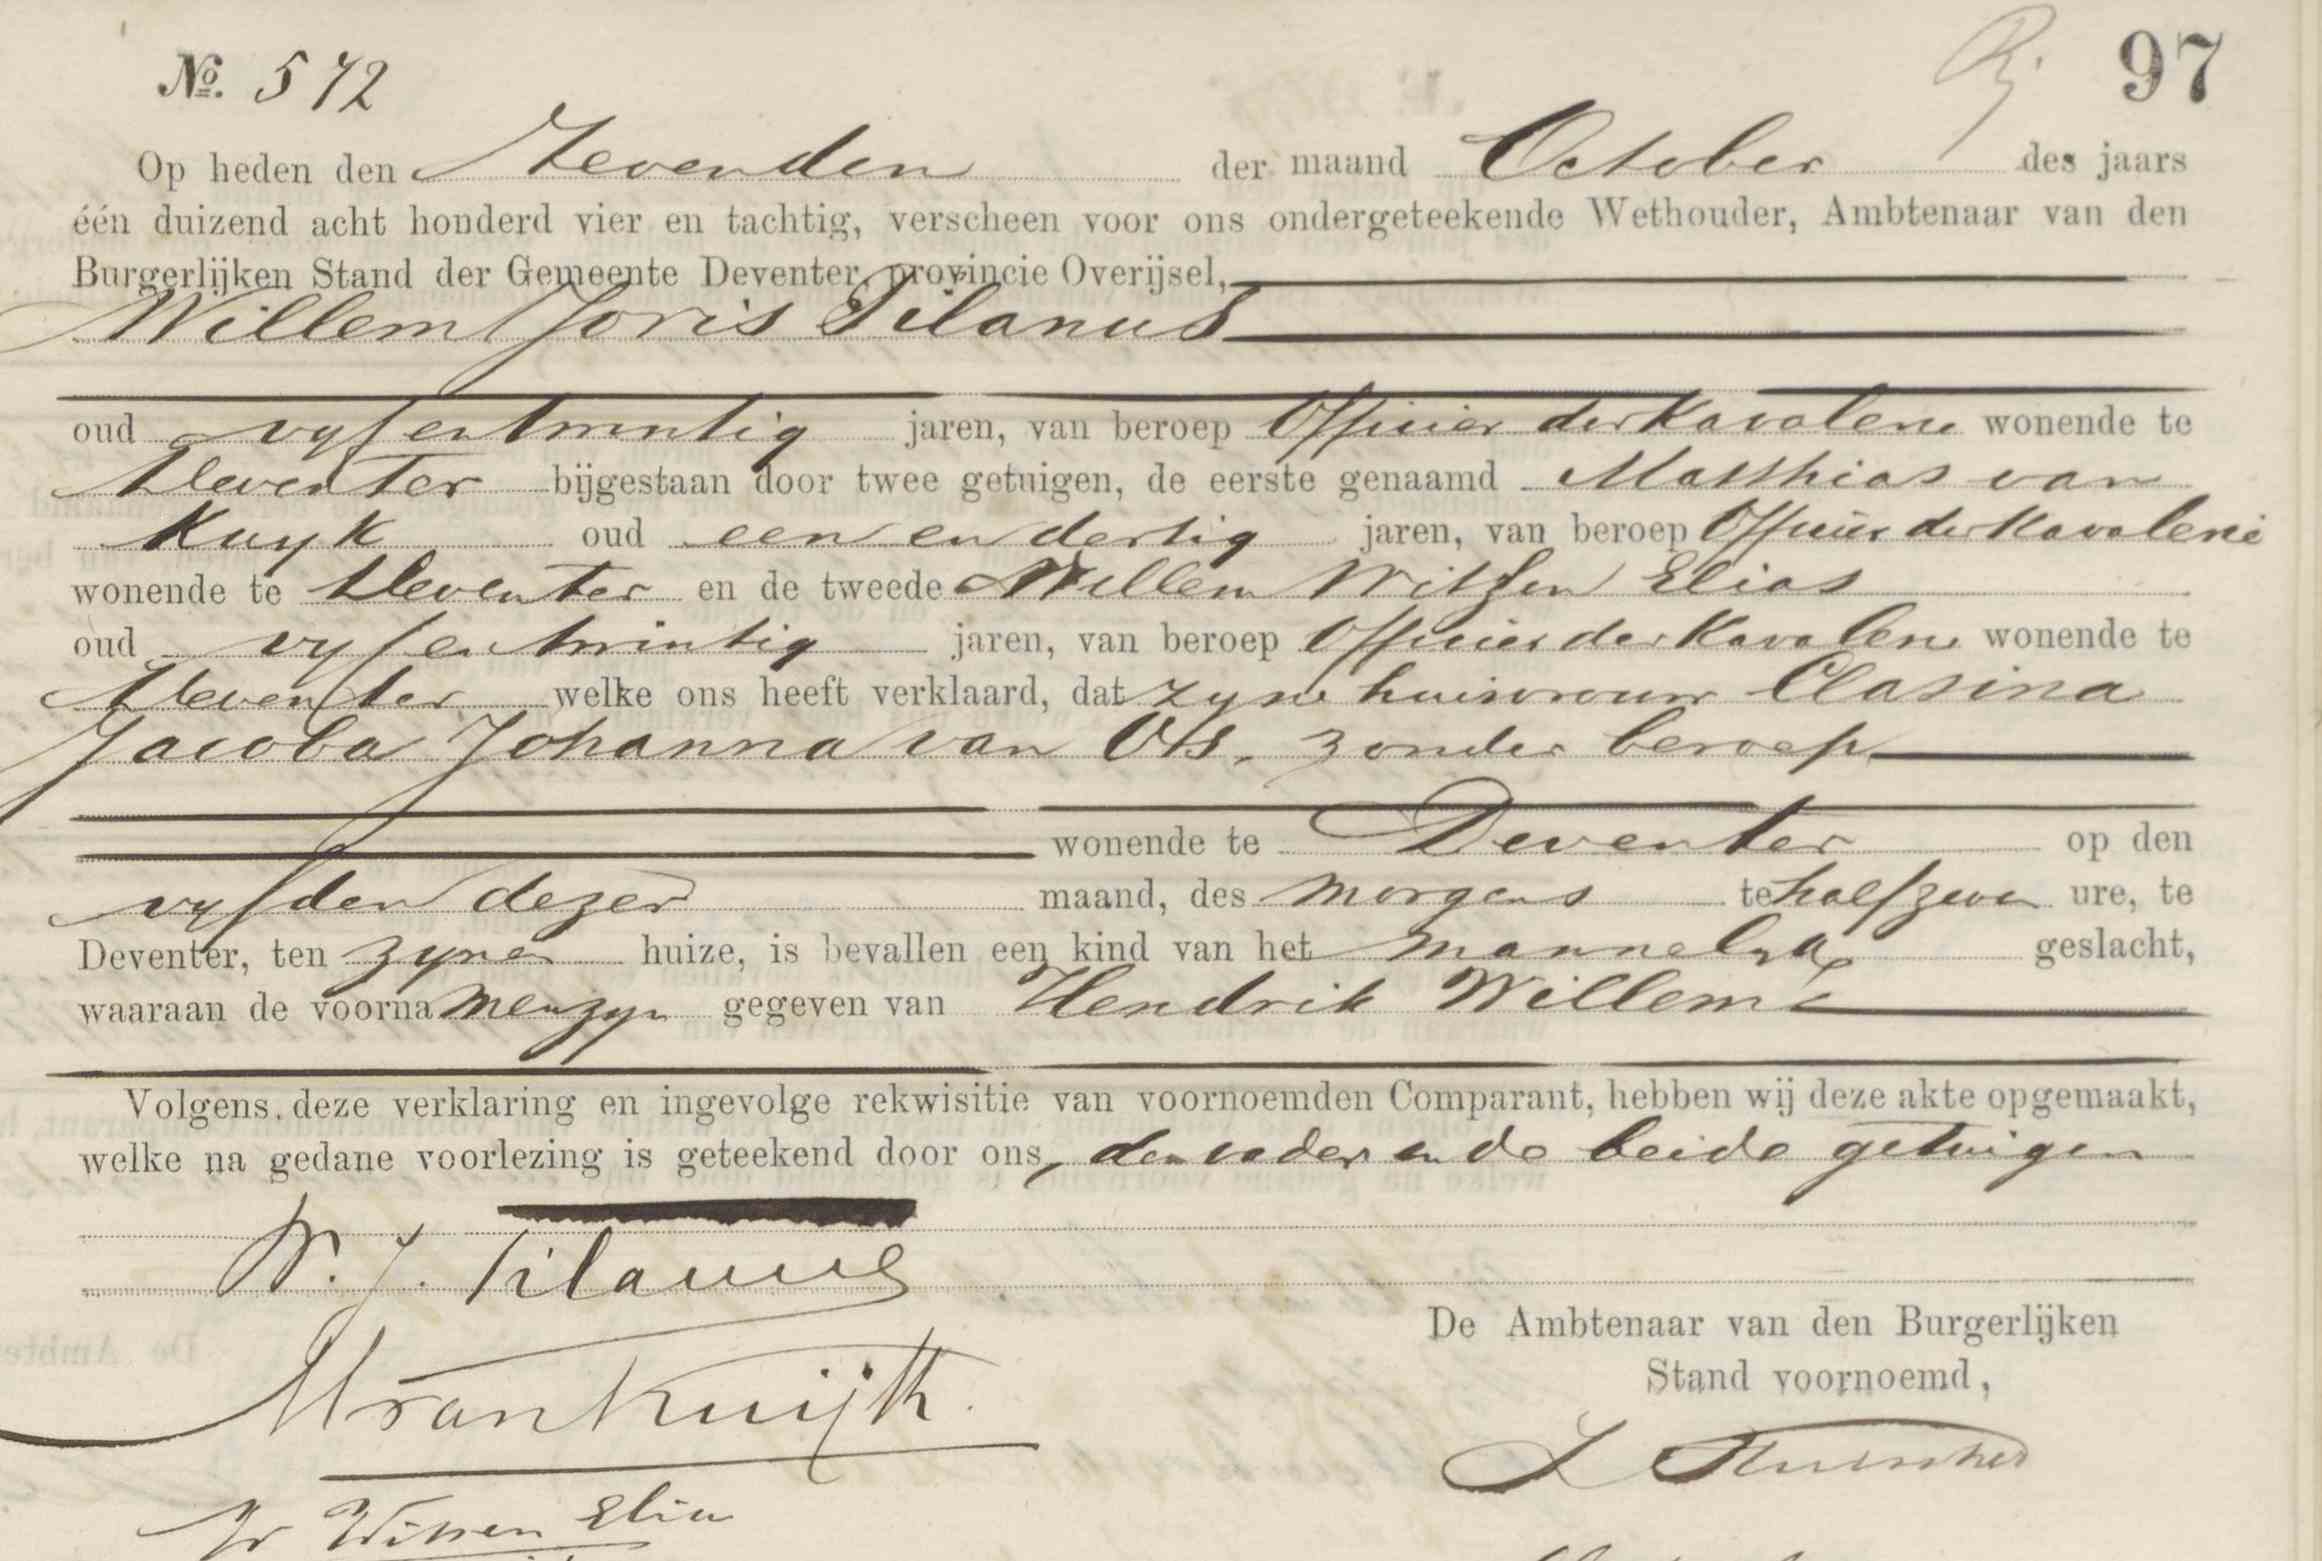 No. 572
97
Op heden den Zevenden der maand October des jaars
één duizend acht honderd vier en tachtig, verscheen voor ons ondergeteekende Wethouder, Ambtenaar van den
Burgerlijken Stand der Gemeente Deventer, provincie Overijsel,
Willem Joris Tilanus
oud vyfentwintig jaren, van beroep Officier der Kavalerie wonende te
Deventer bijgestaan door twee getuigen, de eerste genaamd Matthias van
Kuyk oud een en dertig jaren, van beroep Officier der Kavalerie
wonende te Deventer en de tweede Willem Witsen Elias
oud vyfentwintig jaren, van beroep Officier der Kavalerie wonende te
Deventer welke ons heeft verklaard, dat zyne huisvrouw Clasina
Jacoba Johanna van Os, zonder beroep
wonende te Deventer op den
vyfden dezer maand, des morgens te half zeven ure, te
Deventer, ten zynen huize, is bevallen een kind van het mannelyk geslacht,
waaraan de voornamen zyn gegeven van Hendrik Willem
Volgens deze verklaring en ingevolge rekwisitie van voornoemden Comparant, hebben wij deze akte opgemaakt,
welke na gedane voorlezing is geteekend door ons, den vader en de beide getuigen
W. J. Tilanus
M van Kuijk.
De Ambtenaar van den Burgerlijken
Stand voornoemd,
W Witsen Elias